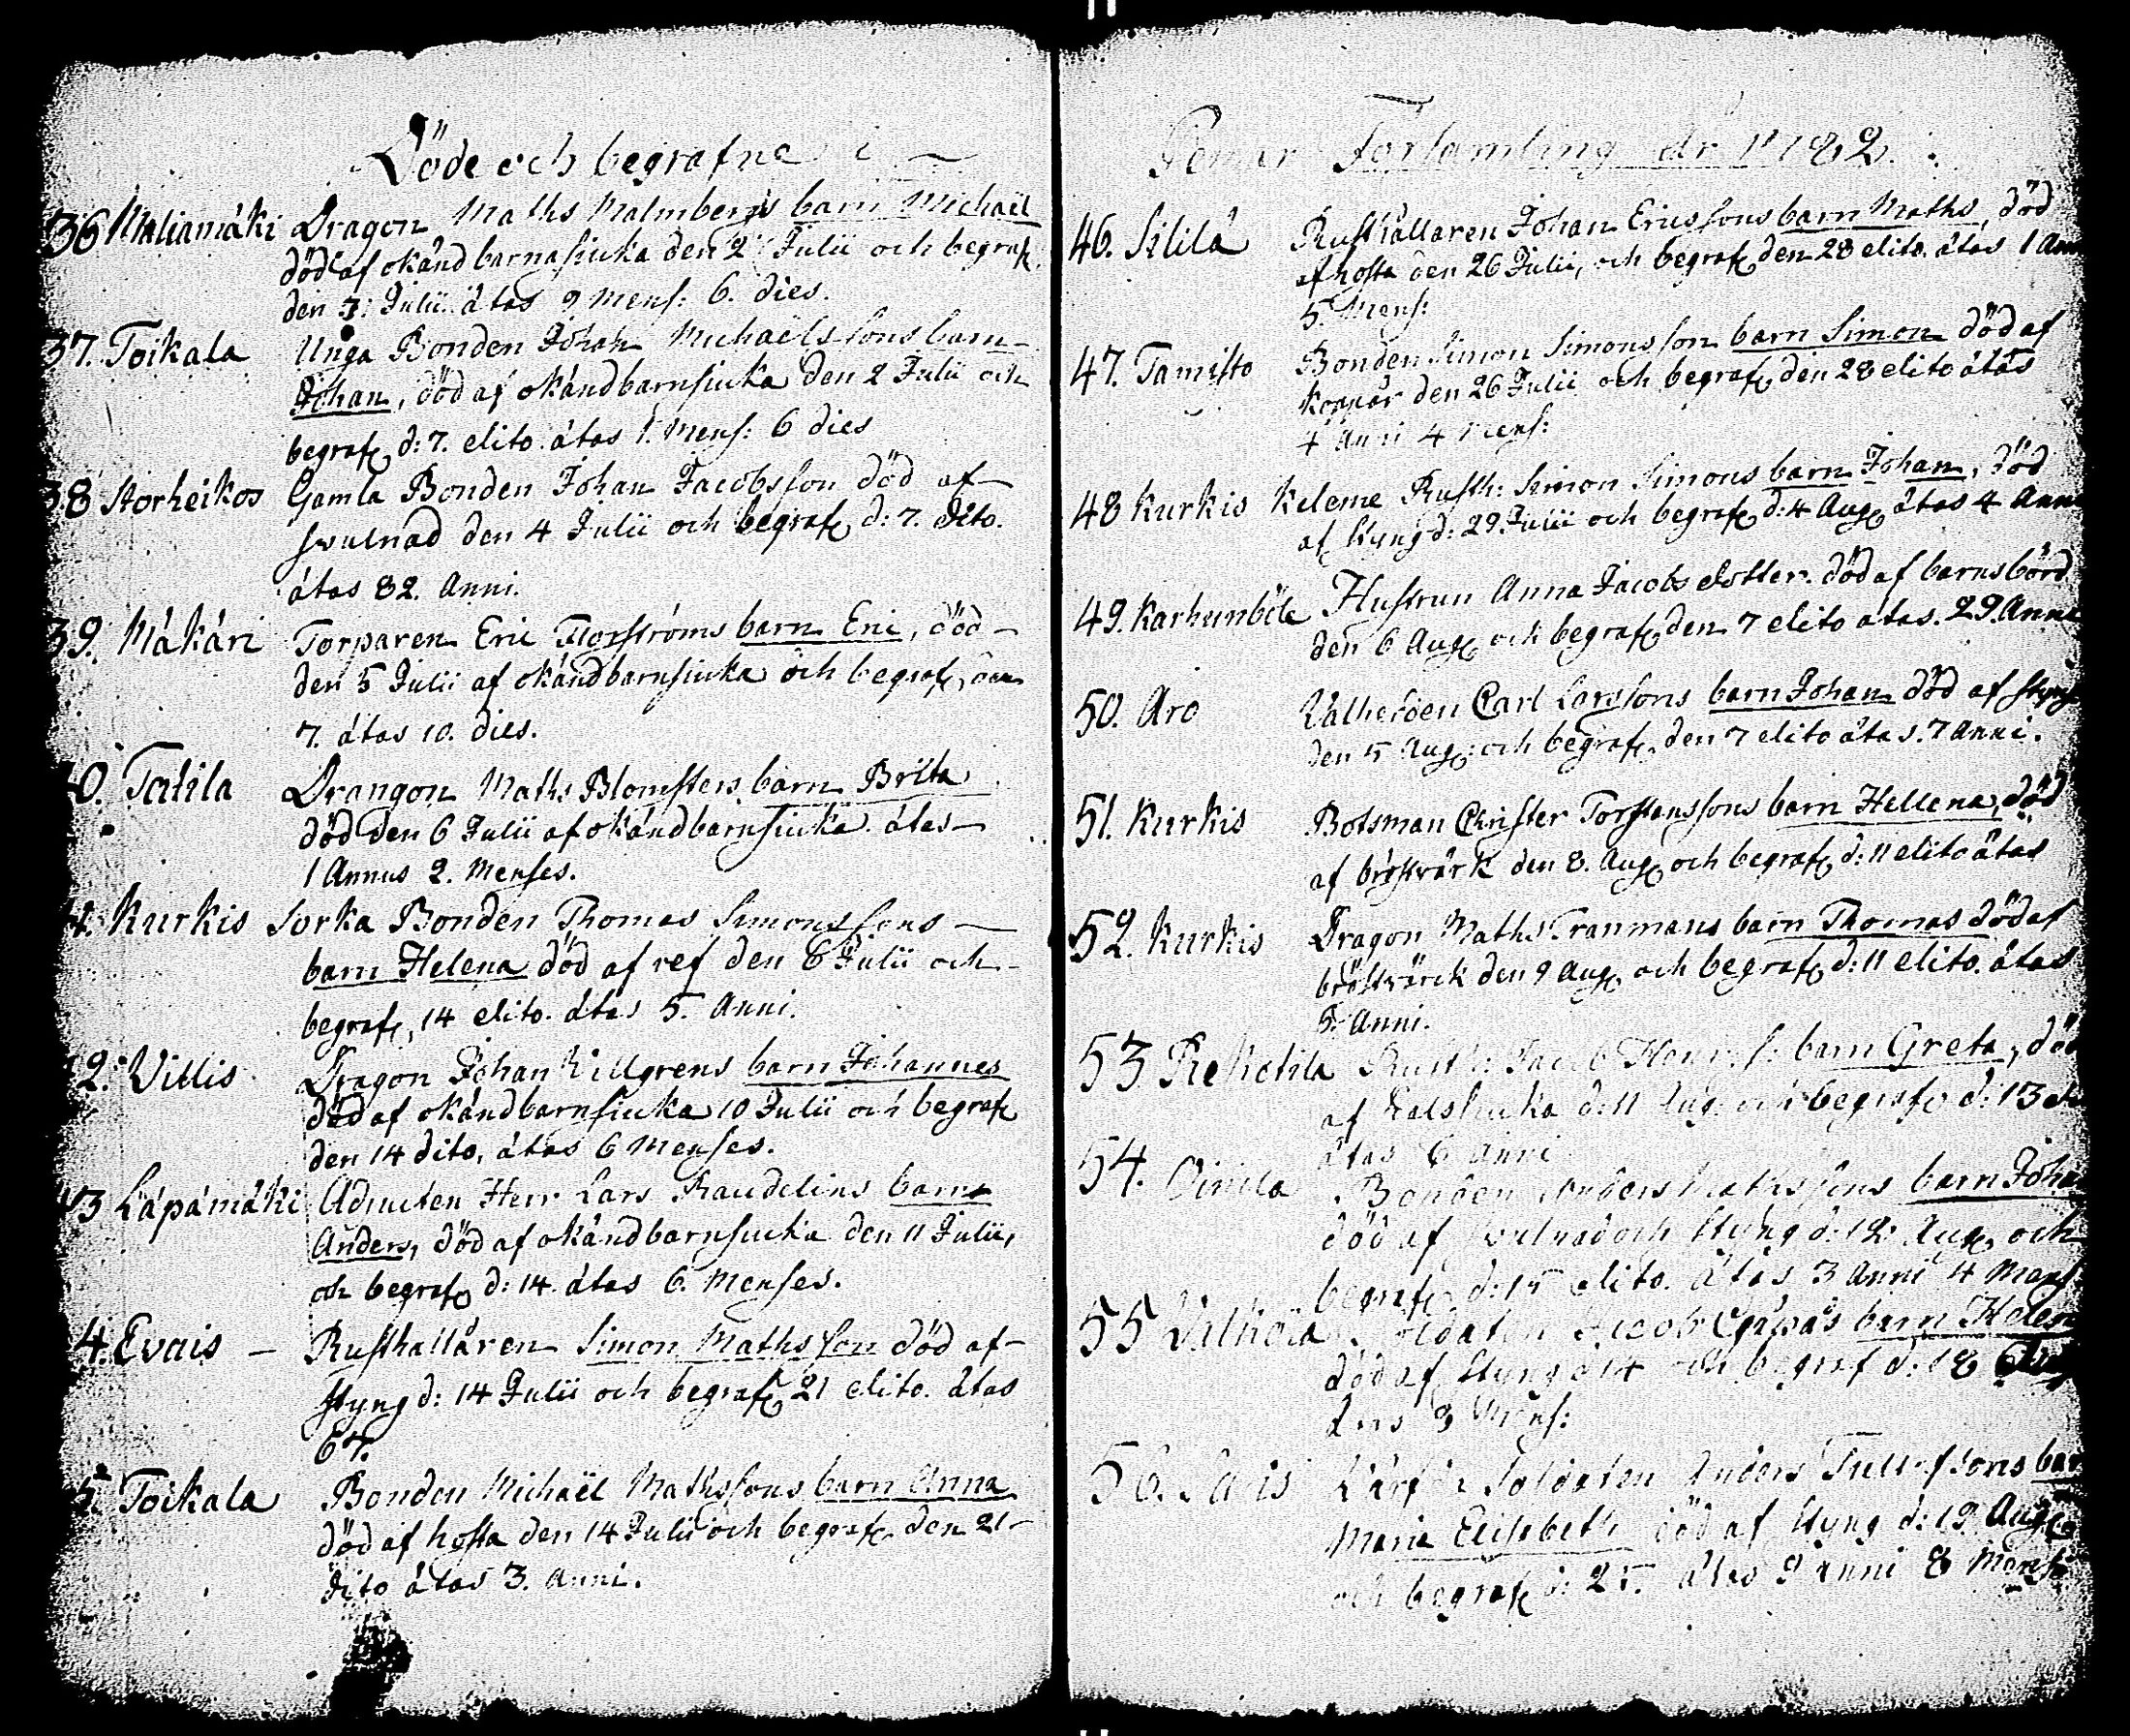 Döde och begrafne i
36 Maliamäki Dragon Maths Malmbergs barn Michaël
död af okänd barnasiuka den 2 Julii och begrafs
den 3: Julii ätas 9 Mens: 6. dies.
37. Toikala Unga Bonden Johan Michaëls sons barn
Johan, död af okänd barnsiuka den 2 Julii och
begrafs d: 7. dito. ätas 1. Mens: 6 dies
38 Storheikos Gamla Bonden Johan Jacobsson död af
svulnad den 4 Julii och begrafs d: 7. dito.
ätas 82. Anni.
39. Mäkäri Torparen Eric Florströms barn Eric, död
den 5 Julii af okänd barnsiuka och begrafs den
7. ätas 10. dies.
0. Tatila Drangon Maths Blomsters barn Brita
död den 6 Julii af okänd barnsiuka ätas
1 Annus 2. Menses.
Kurkis Sorka Bonden Thomas Simons sons
barn Helena död af ref den 6 Julii och
begrafs, 14 dito. ätas 5. Anni.
2. Villis Dragon Johan Killgrens barn Johannes
död af okänd barnsiuka 10 Julii och begrafs
den 14 dito, ätas 6 Menses.
3 Läpämäki Adjuncten Herr Lars Raudelins barn
Anders, död af okänd barnsiuka den 11 Julii,
och begrafs d: 14 ätas 6. Menses.
4. Evais Rusthallären Simon Maths son död af
styng d: 14 Julii och begrafs 21 dito. ätas
64.
5. Toikala Bonden Michaël Mathssons barn Anna
död af hosta den 14 Julii och begrafs den 21
dito ätas 3. Anni.
Pemar Församling år 1782.
46. Rusthållaren Johan Ericssons barn Maths, död
af hosta den 26 Julii, och begrafs den 28 dito. ätas 1 Ann
5. Mens:
47. Tamisto Bonden Simon Simonsson barn Simon död af
koppår den 26 Julii och begrafs den 28 dito ätas
4 Anni 4 Mens:
48 Kurkis Keleme Rusth: Simon Simons barn Johan, död
af styng d: 29. Julii och begrafs d: 4 Aug ätas 4 Anni
49. Karhunböle Hustrun Anna Jacobs dotter död af barnsbörd
den 6 Aug och begrafs den 7 dito ätas. 29. Anni
50. Aro Carl Larssons barn Johan död af styng
den 5 Aug: och begrafs den 7 dito ätas. 7 Anni.
51. Kurkis Botsman Christer Torstenssons barn Hellena, död
af bröstvärk den 8. Aug och begrafs d: 11 dito ätas
52. Kurkis Dragon Maths Tranmans barn Thomas död af
bröstvärck den 9 Aug och begrafs d: 11 dito. ätas
5. Anni.
53 Rekotila Rusth: Jacob barn Greta, död
af halssiuka d: 11 Aug: och begrafs d: 13
ätas 6 Anni
54. Oinila Bonden Anders Mathssons barn Joha
död af svulnad och styng d: 12 Aug och
begrafs d: 15 dito. ätas 3 Anni 4 Mens
55 Soldaten Jacob barn Helen
död af styng d 14 och begraf d: 18
ätas 3 Mens:
56. Soldaten Anders barn
Maria Elisabeth död af styng d: 19 Aug
och begrafs d: 25. ätas 9 Anni 8 Mens